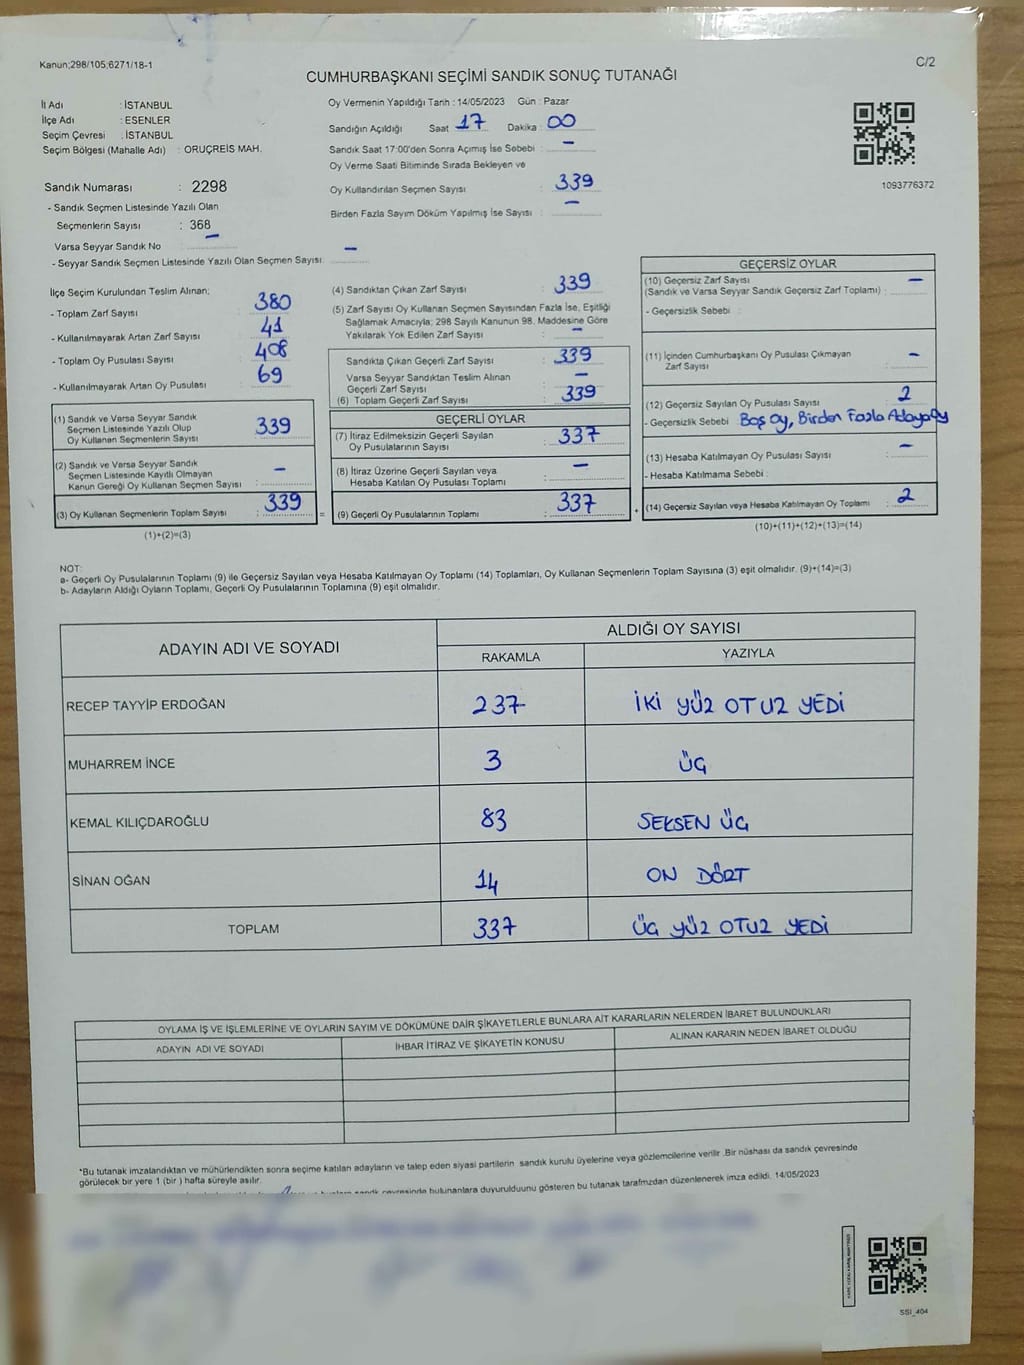 Kanun;298/105;6271/18-1
C/2
CUMHURBAŞKANI SEÇİMİ SANDIK SONUÇ TUTANAĞI
İl Adı : İSTANBUL
İlçe Adı : ESENLER
Seçim Çevresi : İSTANBUL
Seçim Bölgesi (Mahalle Adı) : ORUÇREİS MAH.
Sandık Numarası : 2298
- Sandık Seçmen Listesinde Yazılı Olan
Seçmenlerin Sayısı : 368
Varsa Seyyar Sandık No : –
- Seyyar Sandık Seçmen Listesinde Yazılı Olan Seçmen Sayısı: –
Oy Vermenin Yapıldığı Tarih : 14/05/2023 Gün : Pazar
Sandığın Açıldığı Saat : 17 Dakika : 00
Sandık Saat 17:00'den Sonra Açımış İse Sebebi : –
Oy Verme Saati Bitiminde Sırada Bekleyen ve
Oy Kullandırılan Seçmen Sayısı : 339
Birden Fazla Sayım Döküm Yapılmış İse Sayısı : –
1093776372
İlçe Seçim Kurulundan Teslim Alınan;
- Toplam Zarf Sayısı : 380
- Kullanılmayarak Artan Zarf Sayısı : 41
- Toplam Oy Pusulası Sayısı : 408
- Kullanılmayarak Artan Oy Pusulası : 69
(1) Sandık ve Varsa Seyyar Sandık
Seçmen Listesinde Yazılı Olup
Oy Kullanan Seçmenlerin Sayısı : 339
(2) Sandık ve Varsa Seyyar Sandık
Seçmen Listesinde Kayıtlı Olmayan
Kanun Gereği Oy Kullanan Seçmen Sayısı : –
(3) Oy Kullanan Seçmenlerin Toplam Sayısı : 339
(1)+(2)=(3)
(4) Sandıktan Çıkan Zarf Sayısı : 339
(5) Zarf Sayısı Oy Kullanan Seçmen Sayısından Fazla İse, Eşitliği
Sağlamak Amacıyla; 298 Sayılı Kanunun 98. Maddesine Göre
Yakılarak Yok Edilen Zarf Sayısı : –
Sandıkta Çıkan Geçerli Zarf Sayısı : 339
Varsa Seyyar Sandıktan Teslim Alınan
Geçerli Zarf Sayısı : –
(6) Toplam Geçerli Zarf Sayısı : 339
GEÇERLİ OYLAR
(7) İtiraz Edilmeksizin Geçerli Sayılan
Oy Pusulalarının Sayısı : 337
(8) İtiraz Üzerine Geçerli Sayılan veya
Hesaba Katılan Oy Pusulası Toplamı : –
= (9) Geçerli Oy Pusulalarının Toplamı : 337
GEÇERSİZ OYLAR
(10) Geçersiz Zarf Sayısı
(Sandık ve Varsa Seyyar Sandık Geçersiz Zarf Toplamı) : –
- Geçersizlik Sebebi :
(11) İçinden Cumhurbaşkanı Oy Pusulası Çıkmayan
Zarf Sayısı : –
(12) Geçersiz Sayılan Oy Pusulası Sayısı : 2
- Geçersizlik Sebebi : Boş oy, Birden Fazla Adaya oy
(13) Hesaba Katılmayan Oy Pusulası Sayısı : –
- Hesaba Katılmama Sebebi :
+ (14) Geçersiz Sayılan veya Hesaba Katılmayan Oy Toplamı : 2
(10)+(11)+(12)+(13)=(14)
NOT:
a- Geçerli Oy Pusulalarının Toplamı (9) ile Geçersiz Sayılan veya Hesaba Katılmayan Oy Toplamı (14) Toplamları, Oy Kullanan Seçmenlerin Toplam Sayısına (3) eşit olmalıdır. (9)+(14)=(3)
b- Adayların Aldığı Oyların Toplamı, Geçerli Oy Pusulalarının Toplamına (9) eşit olmalıdır.
ADAYIN ADI VE SOYADI
ALDIĞI OY SAYISI
RAKAMLA YAZIYLA
RECEP TAYYİP ERDOĞAN 237 İKİ YÜZ OTUZ YEDİ
MUHARREM İNCE 3 ÜÇ
KEMAL KILIÇDAROĞLU 83 SEKSEN ÜÇ
SİNAN OĞAN 14 ON DÖRT
TOPLAM 337 ÜÇ YÜZ OTUZ YEDİ
OYLAMA İŞ VE İŞLEMLERİNE VE OYLARIN SAYIM VE DÖKÜMÜNE DAİR ŞİKAYETLERLE BUNLARA AİT KARARLARIN NELERDEN İBARET BULUNDUKLARI
ADAYIN ADI VE SOYADI İHBAR İTİRAZ VE ŞİKAYETİN KONUSU ALINAN KARARIN NEDEN İBARET OLDUĞU
*Bu tutanak imzalandıktan ve mühürlendikten sonra seçime katılan adayların ve talep eden siyasi partilerin sandık kurulu üyelerine veya gözlemcilerine verilir .Bir nüshası da sandık çevresinde
görülecek bir yere 1 (bir ) hafta süreyle asılır.
sandık çevresinde bulunanlara duyurulduunu gösteren bu tutanak tarafımzdan düzenlenerek imza edildi. 14/05/2023
SSI_404